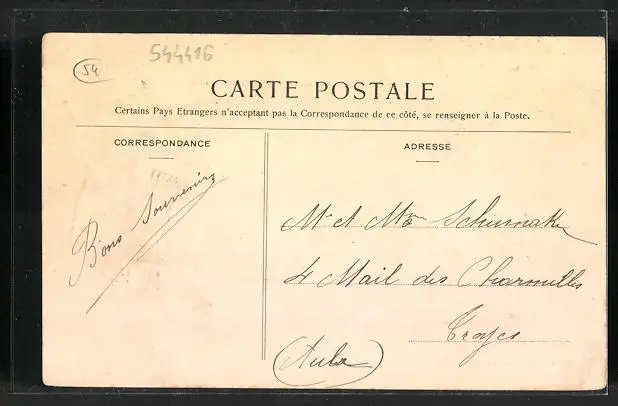 54
544416
CARTE POSTALE
Certains Pays Etrangers n'acceptant pas la Correspondance de ce côté, se renseigner à la Poste.
CORRESPONDANCE
Bons Souvenirs
ADRESSE
Mr et Mme Schumaker
4 Mail des Charmilles
Troyes
(Aube)